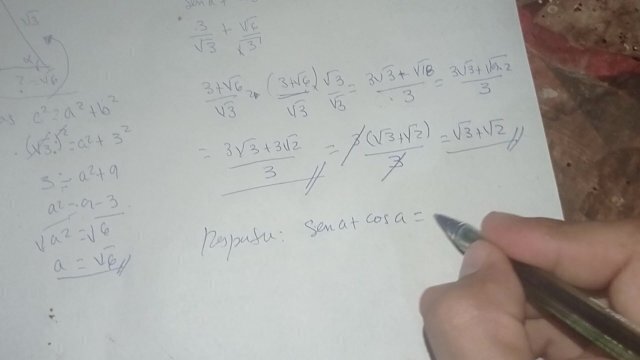 √3
α
? = √6
c² = a² + b²
(√3)² = a² + 3²
3 = a² + 9
a² = 9 - 3
√a² = √6
a = √6
3/√3 + √6/√3
3+√6/√3 = (3+√6)/√3 · √3/√3 = 3√3+√18/3 = 3√3+√9·2/3
= 3√3+3√2/3 = 3(√3+√2)/3 = √3+√2
Sen a + cos a =